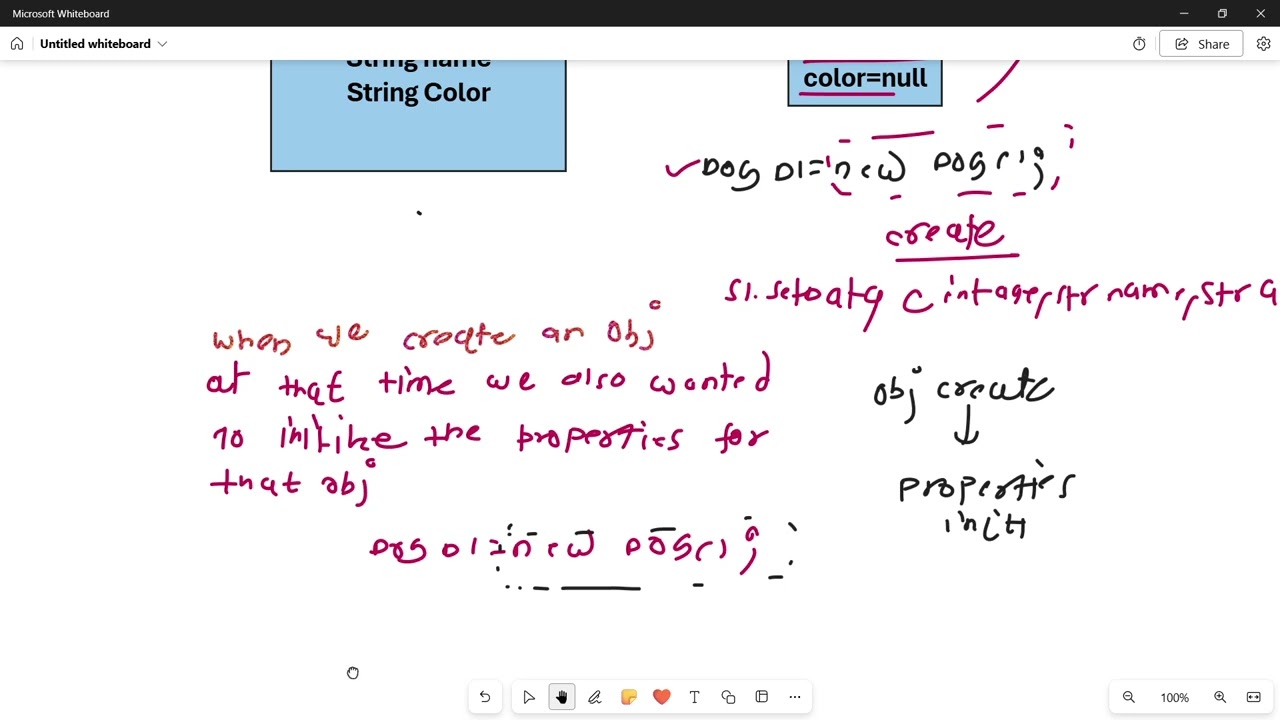 Microsoft Whiteboard
Untitled whiteboard
Share
String name
String Color
color=null
Dog D1=new Dog();
create
S1.setData( int age, str name, str
when we create an obj
at that time we also wanted
to the properties for
that obj
obj create
properties
initi
Dog D1=new Dog();
100%